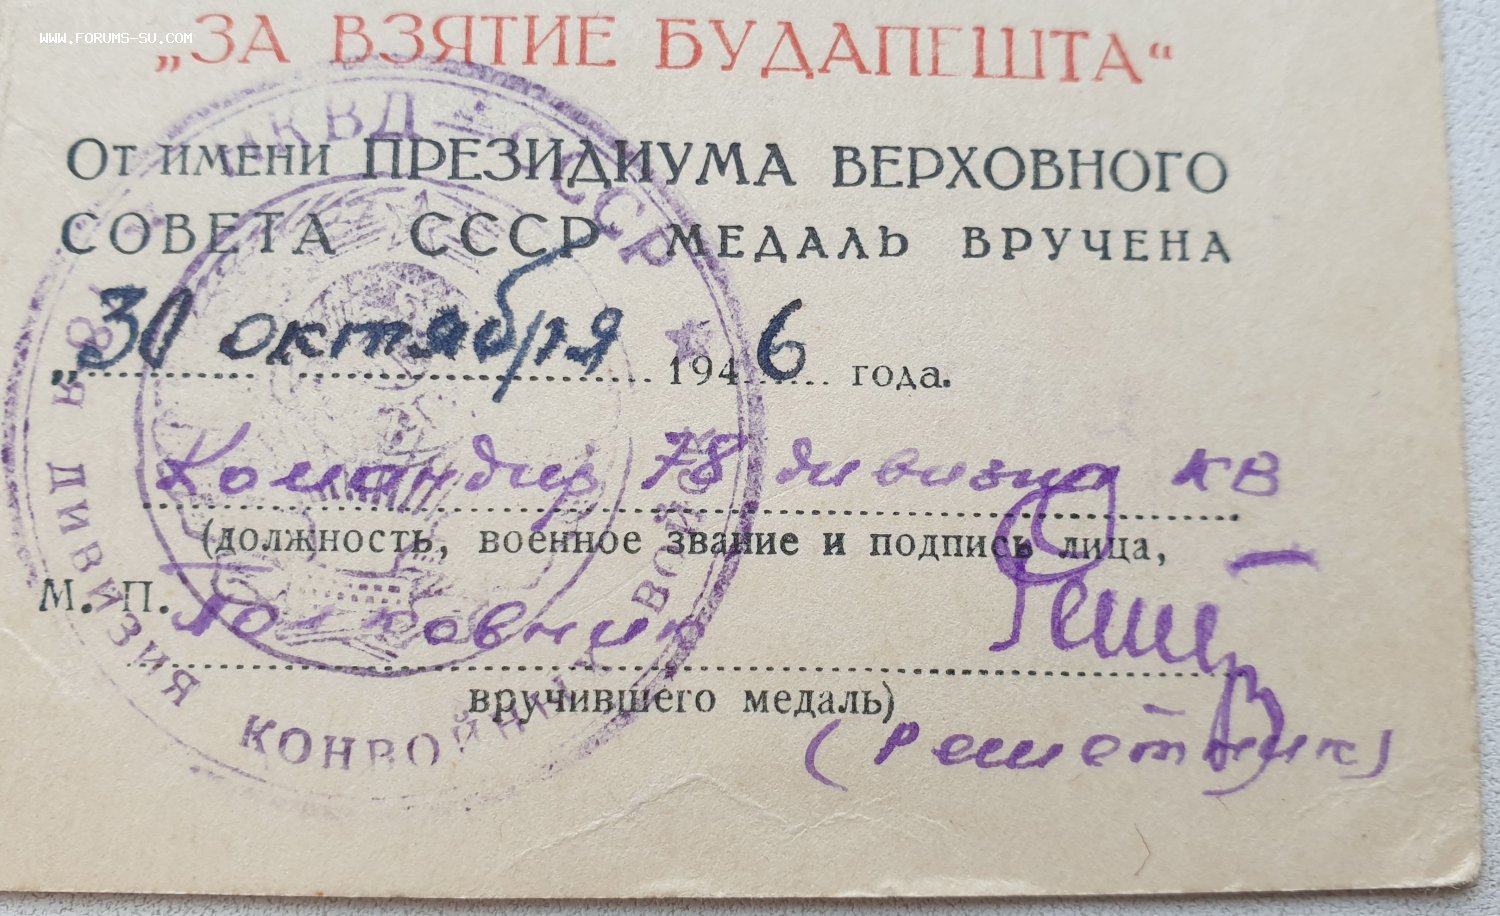 WWW.FORUMS-SU.COM
„ЗА ВЗЯТИЕ БУДАПЕШТА“
От имени ПРЕЗИДИУМА ВЕРХОВНОГО
СОВЕТА СССР МЕДАЛЬ ВРУЧЕНА
„30 октября 1946 года.
Командир 78 дивизии КВ
(должность, военное звание и подпись лица,
М. П. Полковник
вручившего медаль)
(Решетник)
НКВД СССР
78-Я ДИВИЗИЯ КОНВОЙНЫХ ВОЙСК